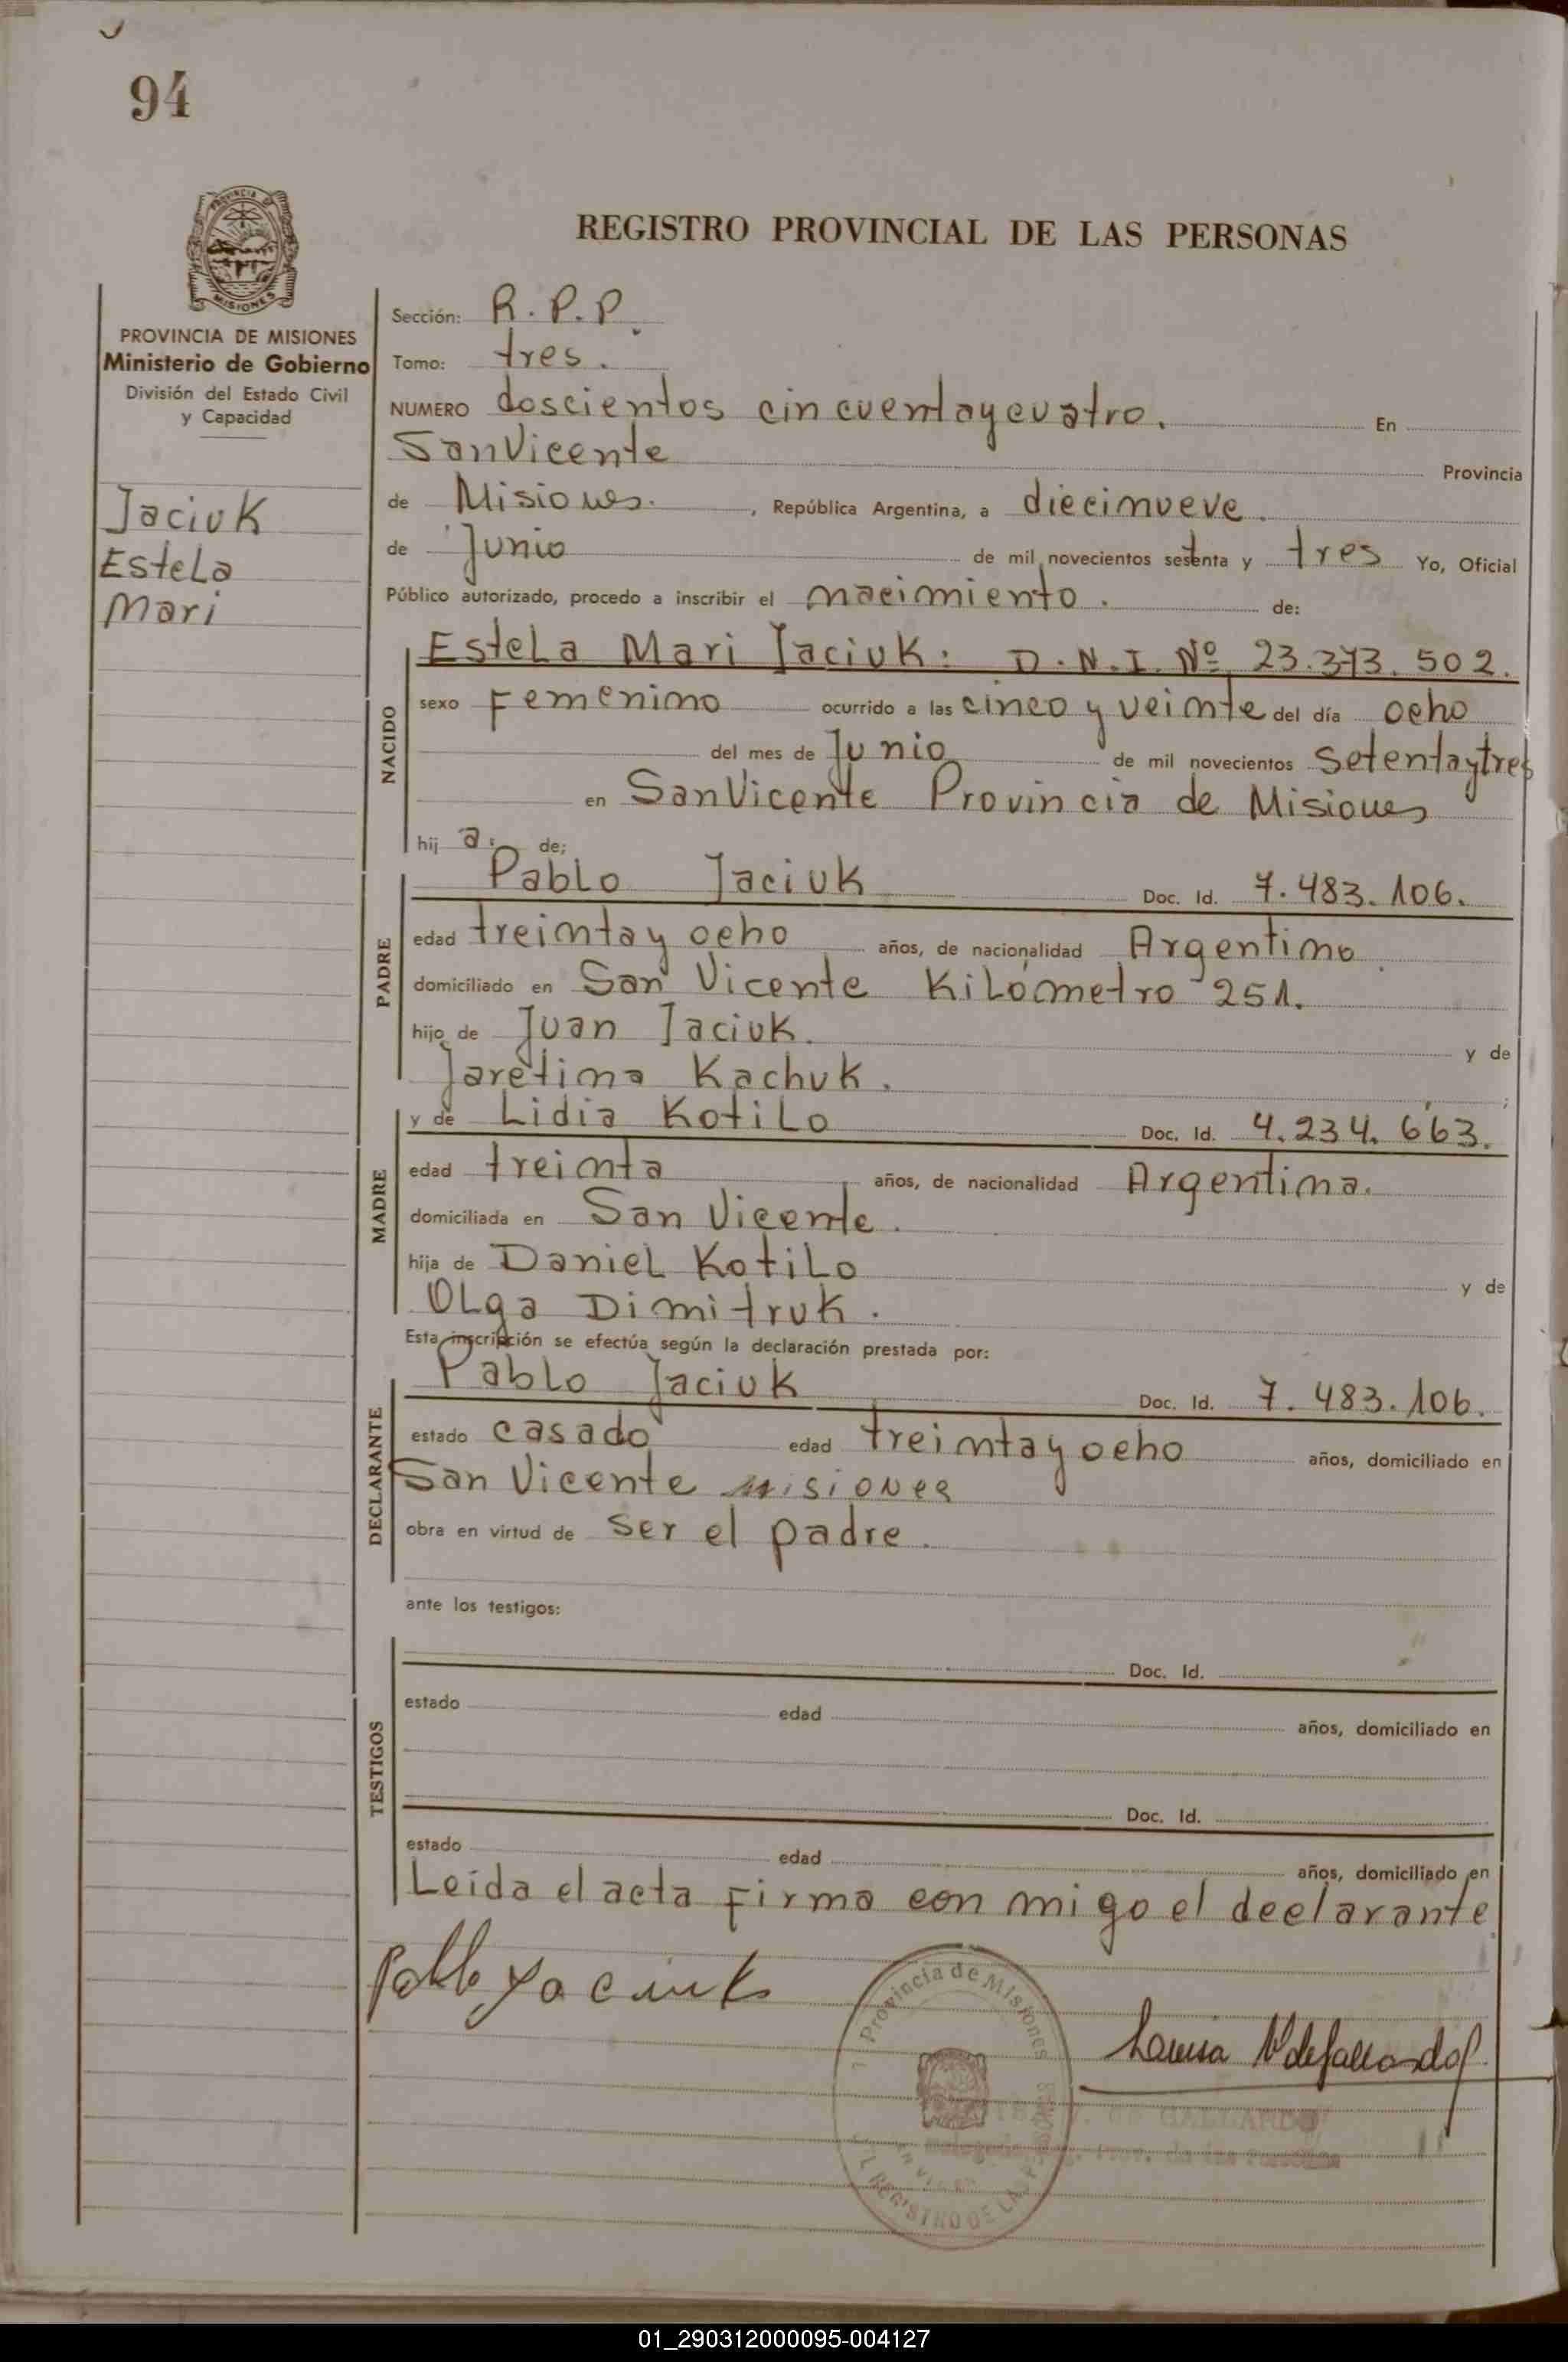 94
PROVINCIA DE
MISIONES
REGISTRO PROVINCIAL DE LAS PERSONAS
PROVINCIA DE MISIONES
Ministerio de Gobierno
División del Estado Civil
y Capacidad
Jaciuk
Estela
Mari
Sección: R.P.P.
Tomo: tres.
NUMERO doscientos cincuentaycuatro. En
San Vicente Provincia
de Misiones. , República Argentina, a diecinueve.
de Junio de mil novecientos setenta y tres Yo, Oficial
Público autorizado, procedo a inscribir el nacimiento. de:
NACIDO
Estela Mari Jaciuk: D.N.I. Nº 23.373.502.
sexo Femenino ocurrido a las cinco y veinte del día ocho
del mes de Junio de mil novecientos setentaytres
en San Vicente Provincia de Misiones
hij a. de;
PADRE
Pablo Jaciuk Doc. Id. 7.483.106.
edad treintay ocho años, de nacionalidad Argentino
domiciliado en San Vicente Kilómetro 251.
hijo de Juan Jaciuk. y de
Jaretina Kachuk. ;
MADRE
y de Lidia Kotilo Doc. Id. 4.234.663.
edad treinta años, de nacionalidad Argentina.
domiciliada en San Vicente.
hija de Daniel Kotilo y de
Olga Dimitruk.
Esta inscripción se efectúa según la declaración prestada por:
DECLARANTE
Pablo Jaciuk Doc. Id. 7.483.106.
estado casado edad treintay ocho años, domiciliado en
San Vicente Misiones
obra en virtud de ser el padre.
ante los testigos:
TESTIGOS
Doc. Id.
estado edad años, domiciliado en
Doc. Id.
estado edad años, domiciliado en
Leida el acta firma con migo el declarante
Pablo Yaciuk
Provincia de Misiones
REGISTRO DE LAS
de GALLARDO
01_290312000095-004127